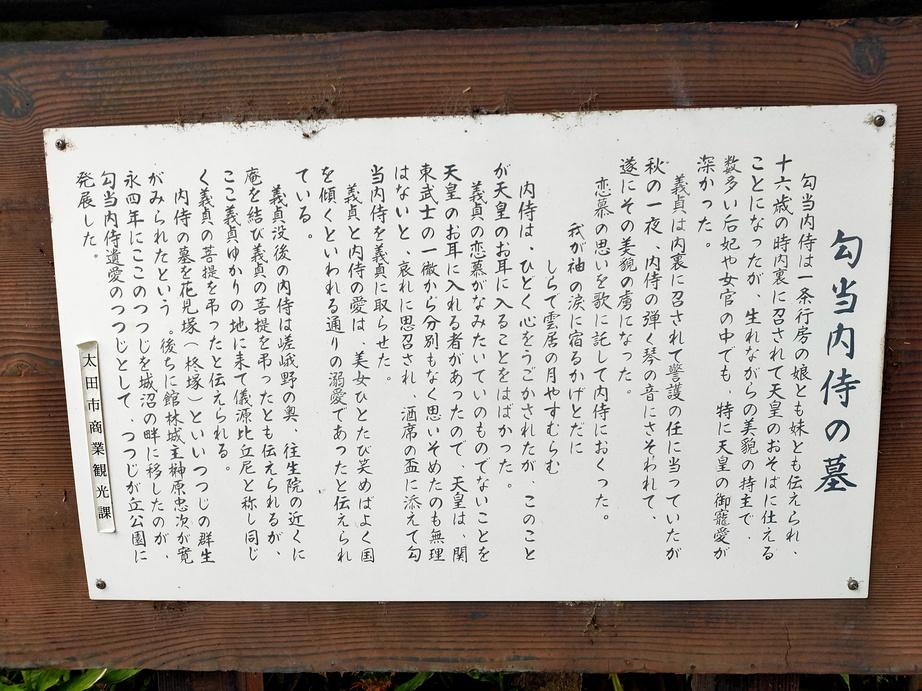 勾当内侍の墓
勾当内侍は一条行房の娘とも妹とも伝えられ、
十六歳の時内裏に召されて天皇のおそばに仕える
ことになったが、生れながらの美貌の持主で、
数多い后妃や女官の中でも、特に天皇の御寵愛が
深かった。
義貞は内裏に召されて警護の任に当っていたが
秋の一夜、内侍の弾く琴の音にさそわれて、
遂にその美貌の虜になった。
恋慕の思いを歌に託して内侍におくった。
我が袖の涙に宿るかげとだに
しらで雲居の月やすむらむ
内侍は ひどく心をうごかされたが このこと
が天皇のお耳に入ることをはばかった。
義貞の恋慕がなみたいていのものでないことを
天皇のお耳に入れる者があったので、天皇は、関
東武士の一徹から分別もなく思いそめたのも無理
はないと、哀れに思召され 酒席の盃に添えて勾
当内侍を義貞に取らせた。
義貞と内侍の愛は、美女ひとたび笑めばよく国
を傾くといわれる通りの溺愛であったと伝えられ
ている。
義貞没後の内侍は嵯峨野の奥、往生院の近くに
庵を結び義貞の菩提を弔ったとも伝えられるが、
ここ義貞ゆかりの地に来て儀源比丘尼と称し同じ
く義貞の菩提を弔ったと伝えられる。
内侍の墓を花見塚（柊塚）といいつつじの群生
がみられたという 。後ちに館林城主榊原忠次が寛
永四年にここのつつじを城沼の畔に移したのが、
勾当内侍遺愛のつつじとして、つつじが丘公園に
発展した。
太田市商業観光課